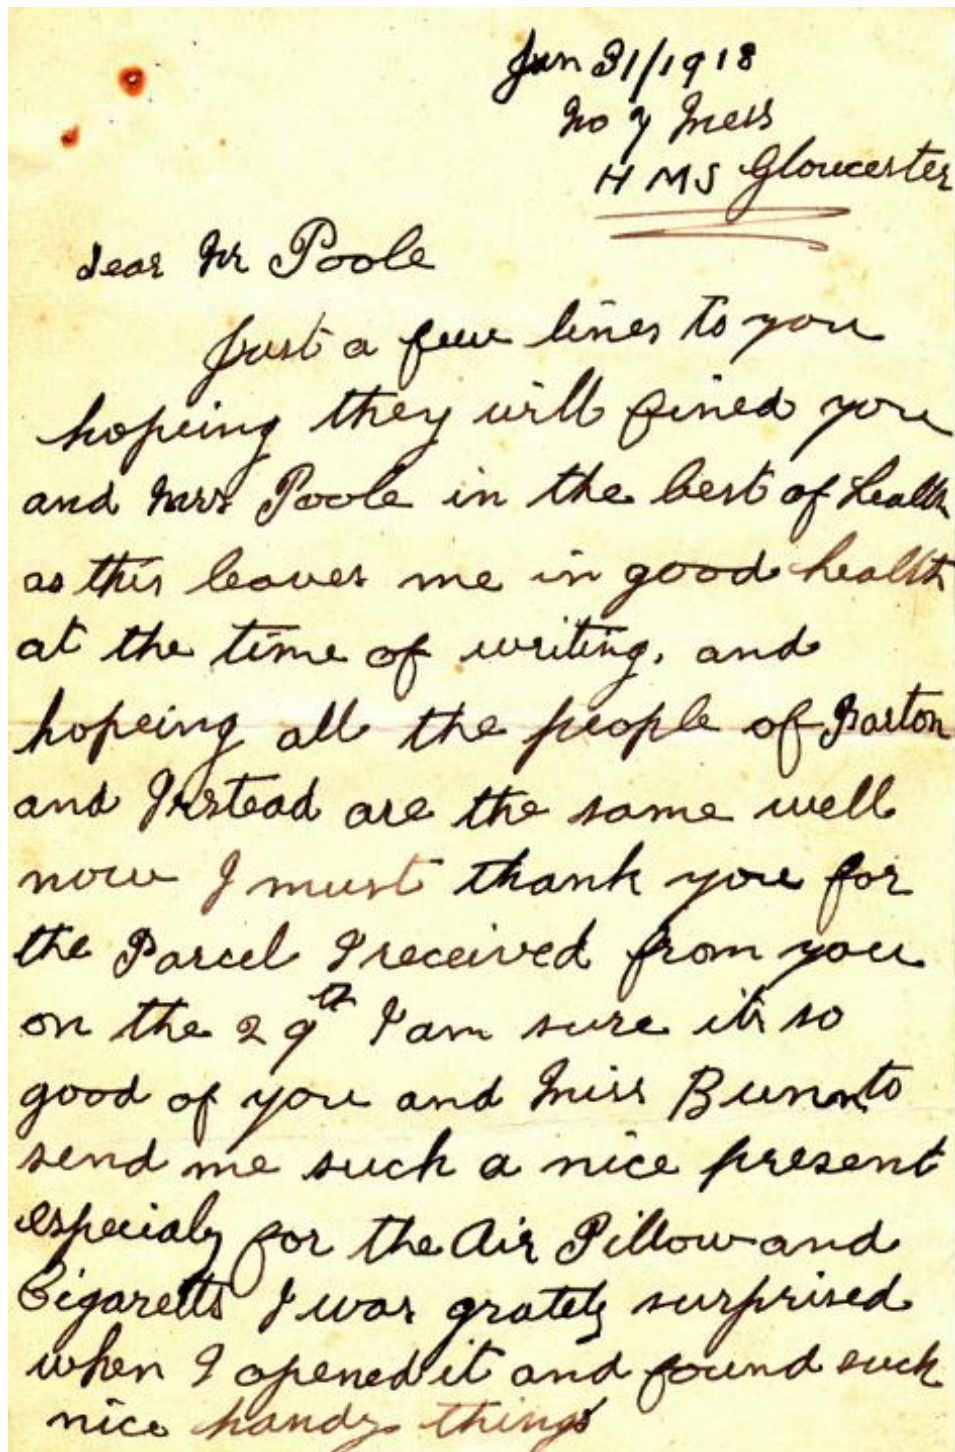 Jan 31/1918
No 7 Mess
H M S Gloucester
dear Mr Poole
Just a few lines to you
hopeing they will fined you
and Mrs Poole in the best of health
as this leaves me in good health
at the time of writing. and
hopeing all the people of Barton
and Irstead are the same well
now I must thank you for
the Parcel I received from you
on the 29th I am sure its so
good of you and Miss Bunn to
send me such a nice present
especialy for the Air Pillow and
Cigaretts I was grately surprised
when I opened it and found such
nice handy things